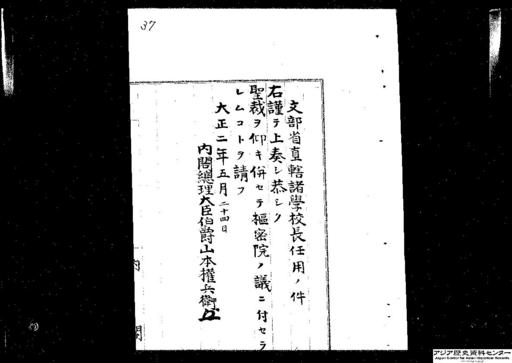 37
文部省直轄諸學校長任用ノ件
右謹テ上奏シ恭シク
聖裁ヲ仰キ併セテ樞密院ノ議ニ付セラ
レムコトヲ請フ
大正二年五月二十四日
内閣總理大臣伯爵山本權兵衞
内閣
アジア歴史資料センター
Japan Center for Asian Historical Records